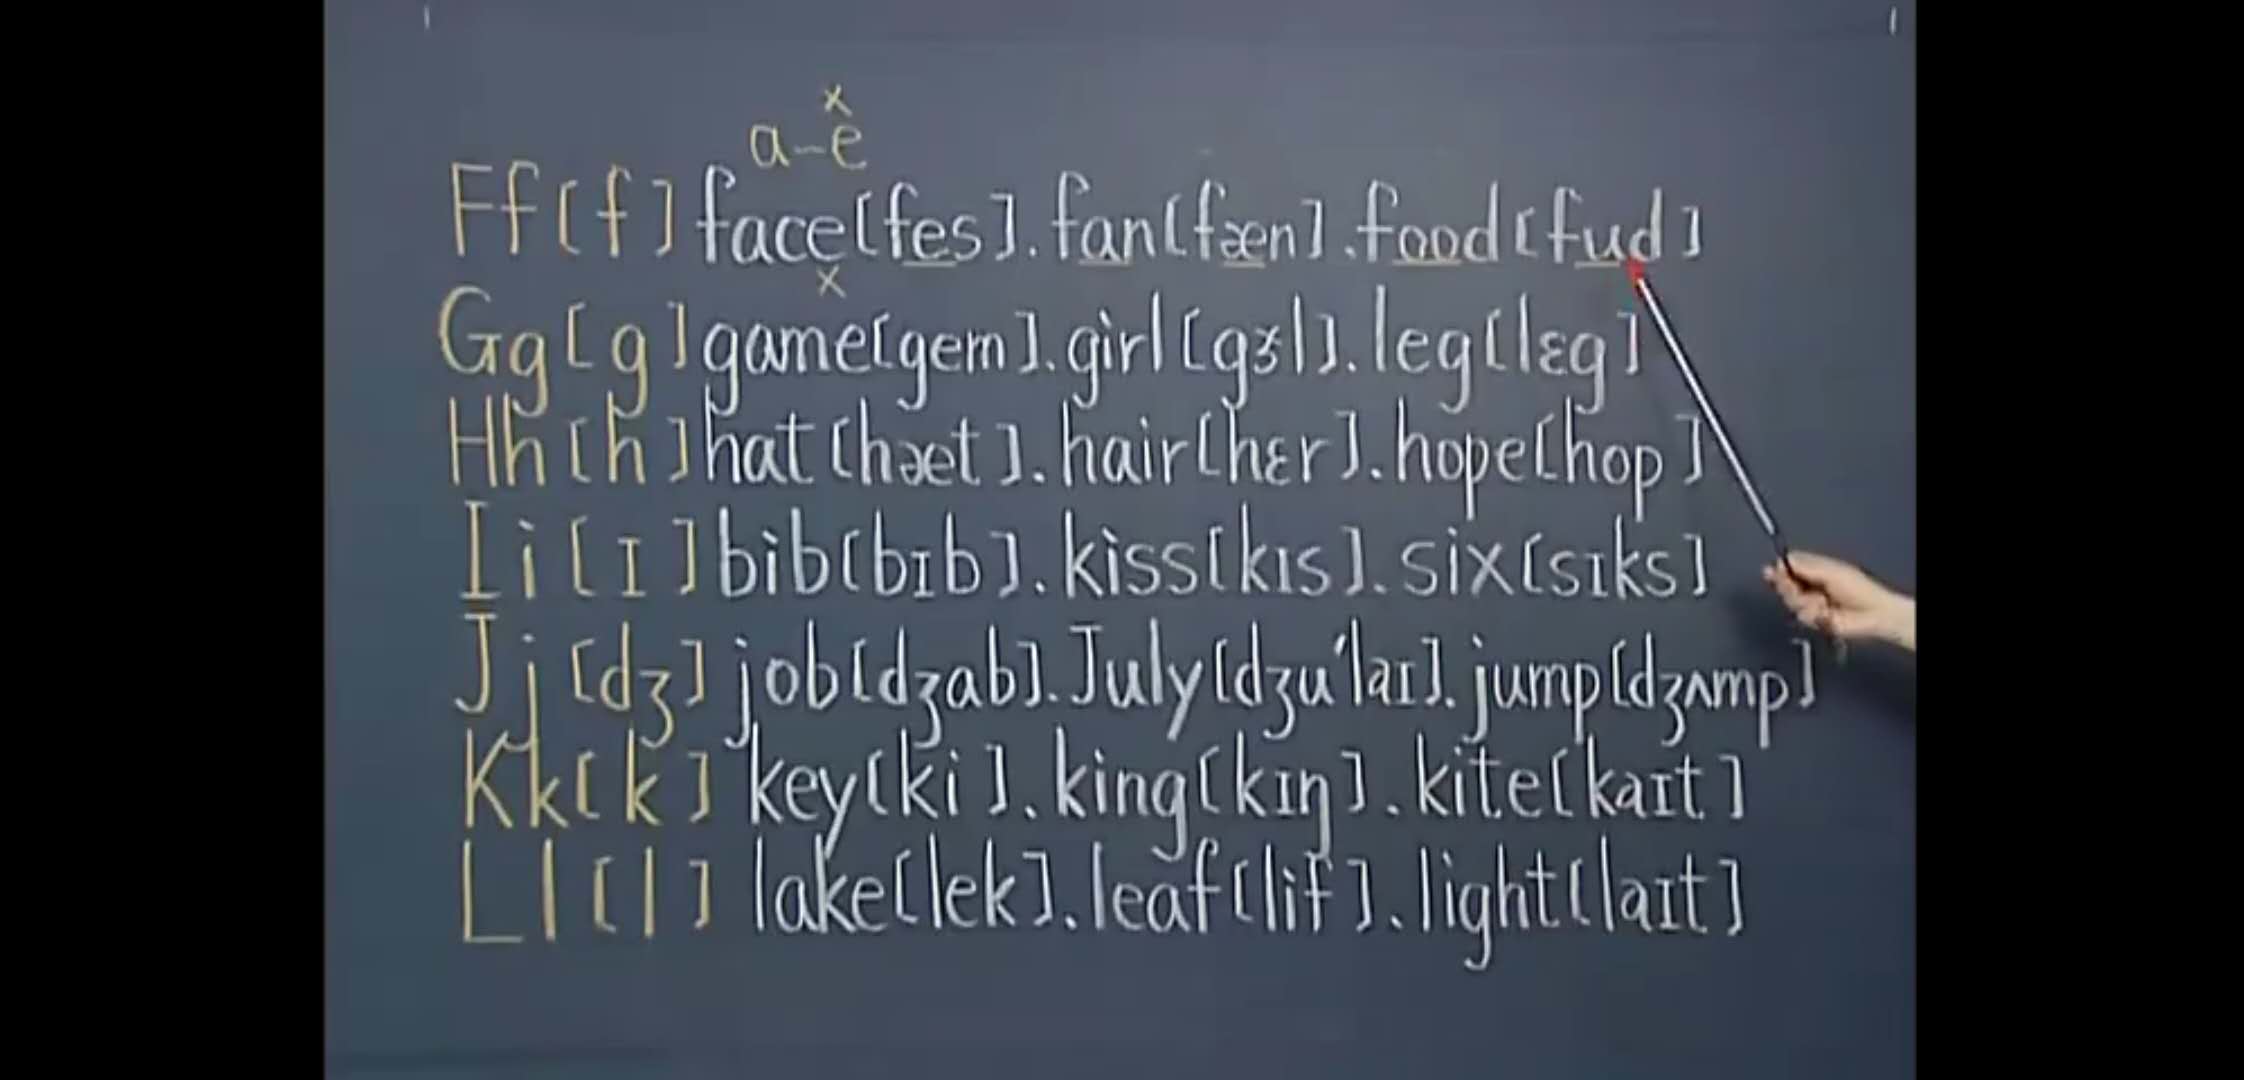 a-e
Ff [f] face [fes]. fan [fæn]. food [fud]
Gg [g] game [gem]. girl [gɝl]. leg [lɛg]
Hh [h] hat [hæt]. hair [hɛr]. hope [hop]
Ii [ɪ] bib [bɪb]. kiss [kɪs]. six [sɪks]
Jj [dʒ] job [dʒab]. July [dʒuˈlaɪ]. jump [dʒʌmp]
Kk [k] key [ki]. king [kɪŋ]. kite [kaɪt]
Ll [l] lake [lek]. leaf [lif]. light [laɪt]